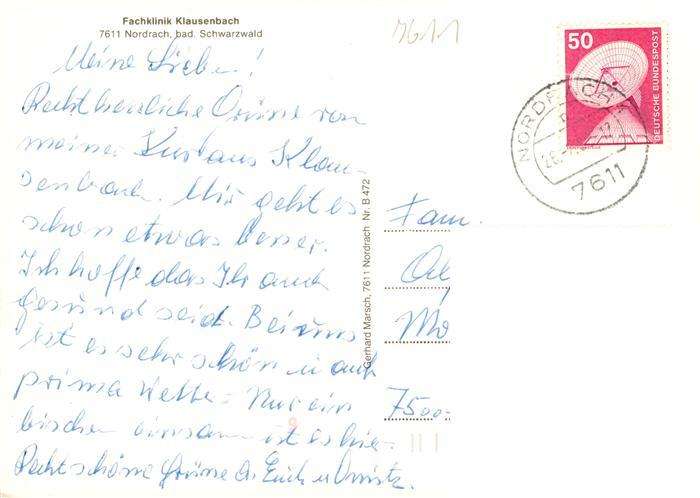 Fachklinik Klausenbach
7611 Nordrach, bad. Schwarzwald
7611
Meine Lieben!
Recht herzliche Grüsse von
meiner Kur aus Klau-
senbach. Mir geht es
schon etwas besser.
Ich hoffe das Ihr auch
gesund seid. Bei uns
ist es sehr schön u auch
prima Wetter. Nur ein
bischen einsam ist es hier
Recht schöne Grüsse an Euch u
Gerhard Marsch, 7611 Nordrach · Nr. B 472
50
DEUTSCHE BUNDESPOST
NORDRACH
7611
Fam.
7500